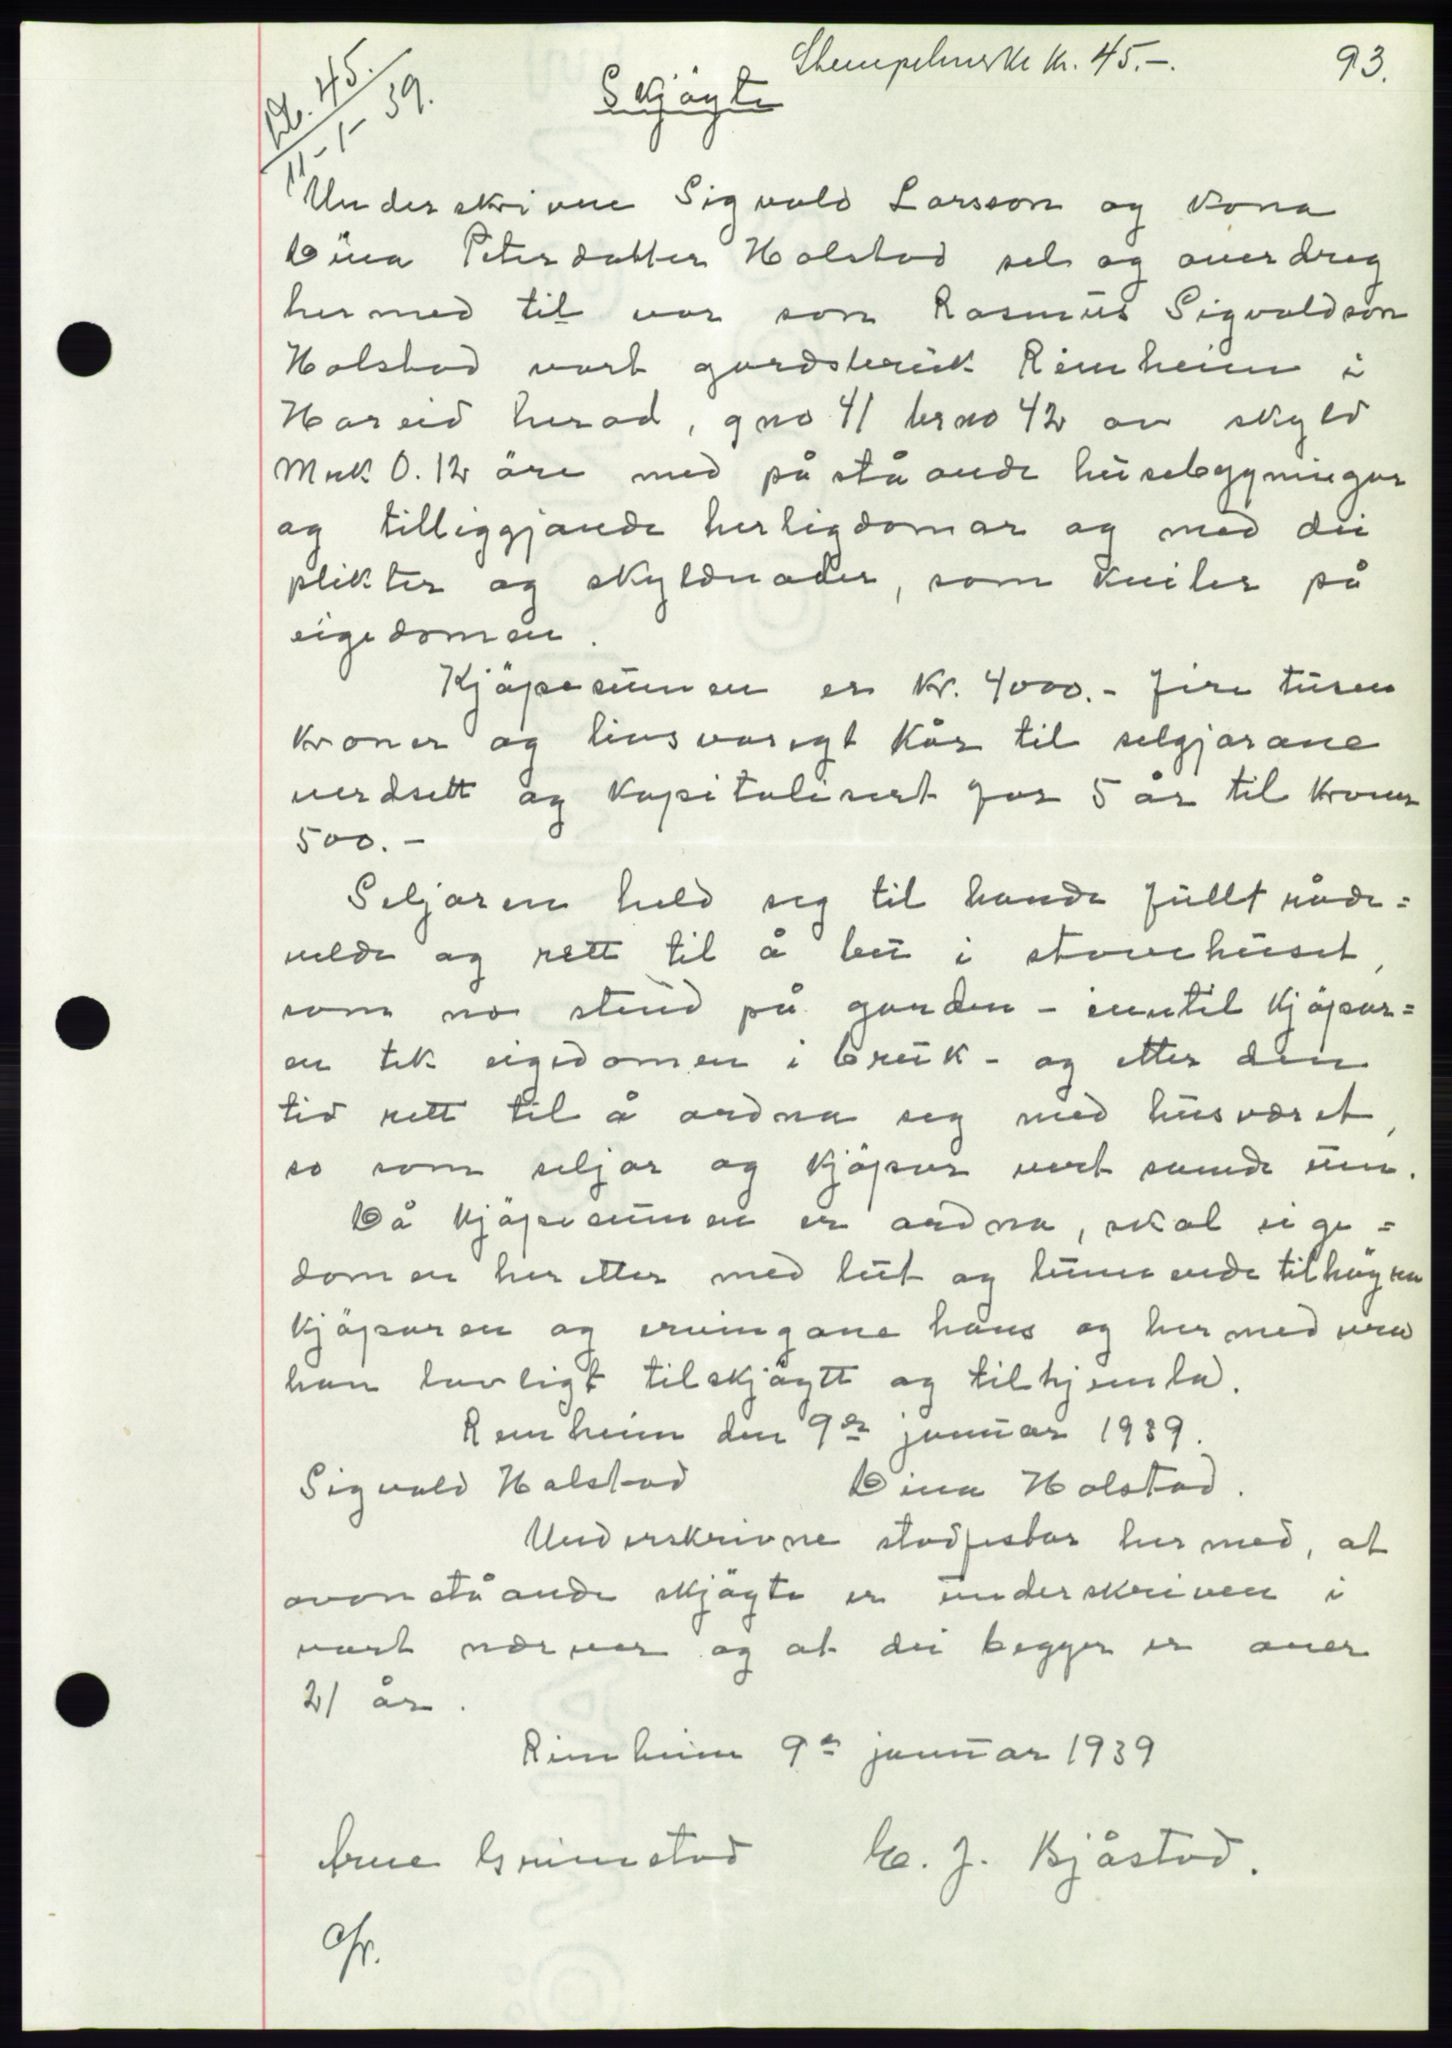 Stempelmerke kr. 45.-. 93.
Db. 45.
11-1-39.
Skjøyte
Underskrivne Sigvald Larsson og kona
Dina Petersdatter Holstad sel og overdreg
hermed til vor son Rasmus Sigvaldson
Holstad vort gardsbruk Reimheim i
Hareid herad, gno 41 brno 42 av skyld
Mrk 0.12 øre med påståande husebygningar
og tilliggjande herligdomar og med dei
plikter og skyldnader, som kviler på
eigedomen.
Kjøpesummen er kr. 4000.- fire tusen
kroner og livsvarigt kår til selgjarane
verdsett og kapitalisert for 5 år til kroner
500.-
Seljaren held seg til hande fullt råde=
velde og rett til å bu i stovehuset,
som no stend på garden - inntil kjøpar=
en tek eigedomen i bruk - og etter den
tid rett til å ordna seg med husværet,
so som seljar og kjøpar vert samde um.
Då kjøpesummen er ordna, skal eige=
domen heretter med lut og lunnende tilhøyra
kjøparen og ervingane hans og hermed vera
han lovligt tilskjøytt og tilhjemla.
Reimheim den 9de januar 1939.
Sigvald Holstad Dina Holstad.
Underskrivne stadfestar hermed, at
ovonståande skjøyte er underskriven i
vort nærver og at dei begge er over
21 år.
Reimheim 9de januar 1939
Arne Grimstad E. J. Bjåstad.